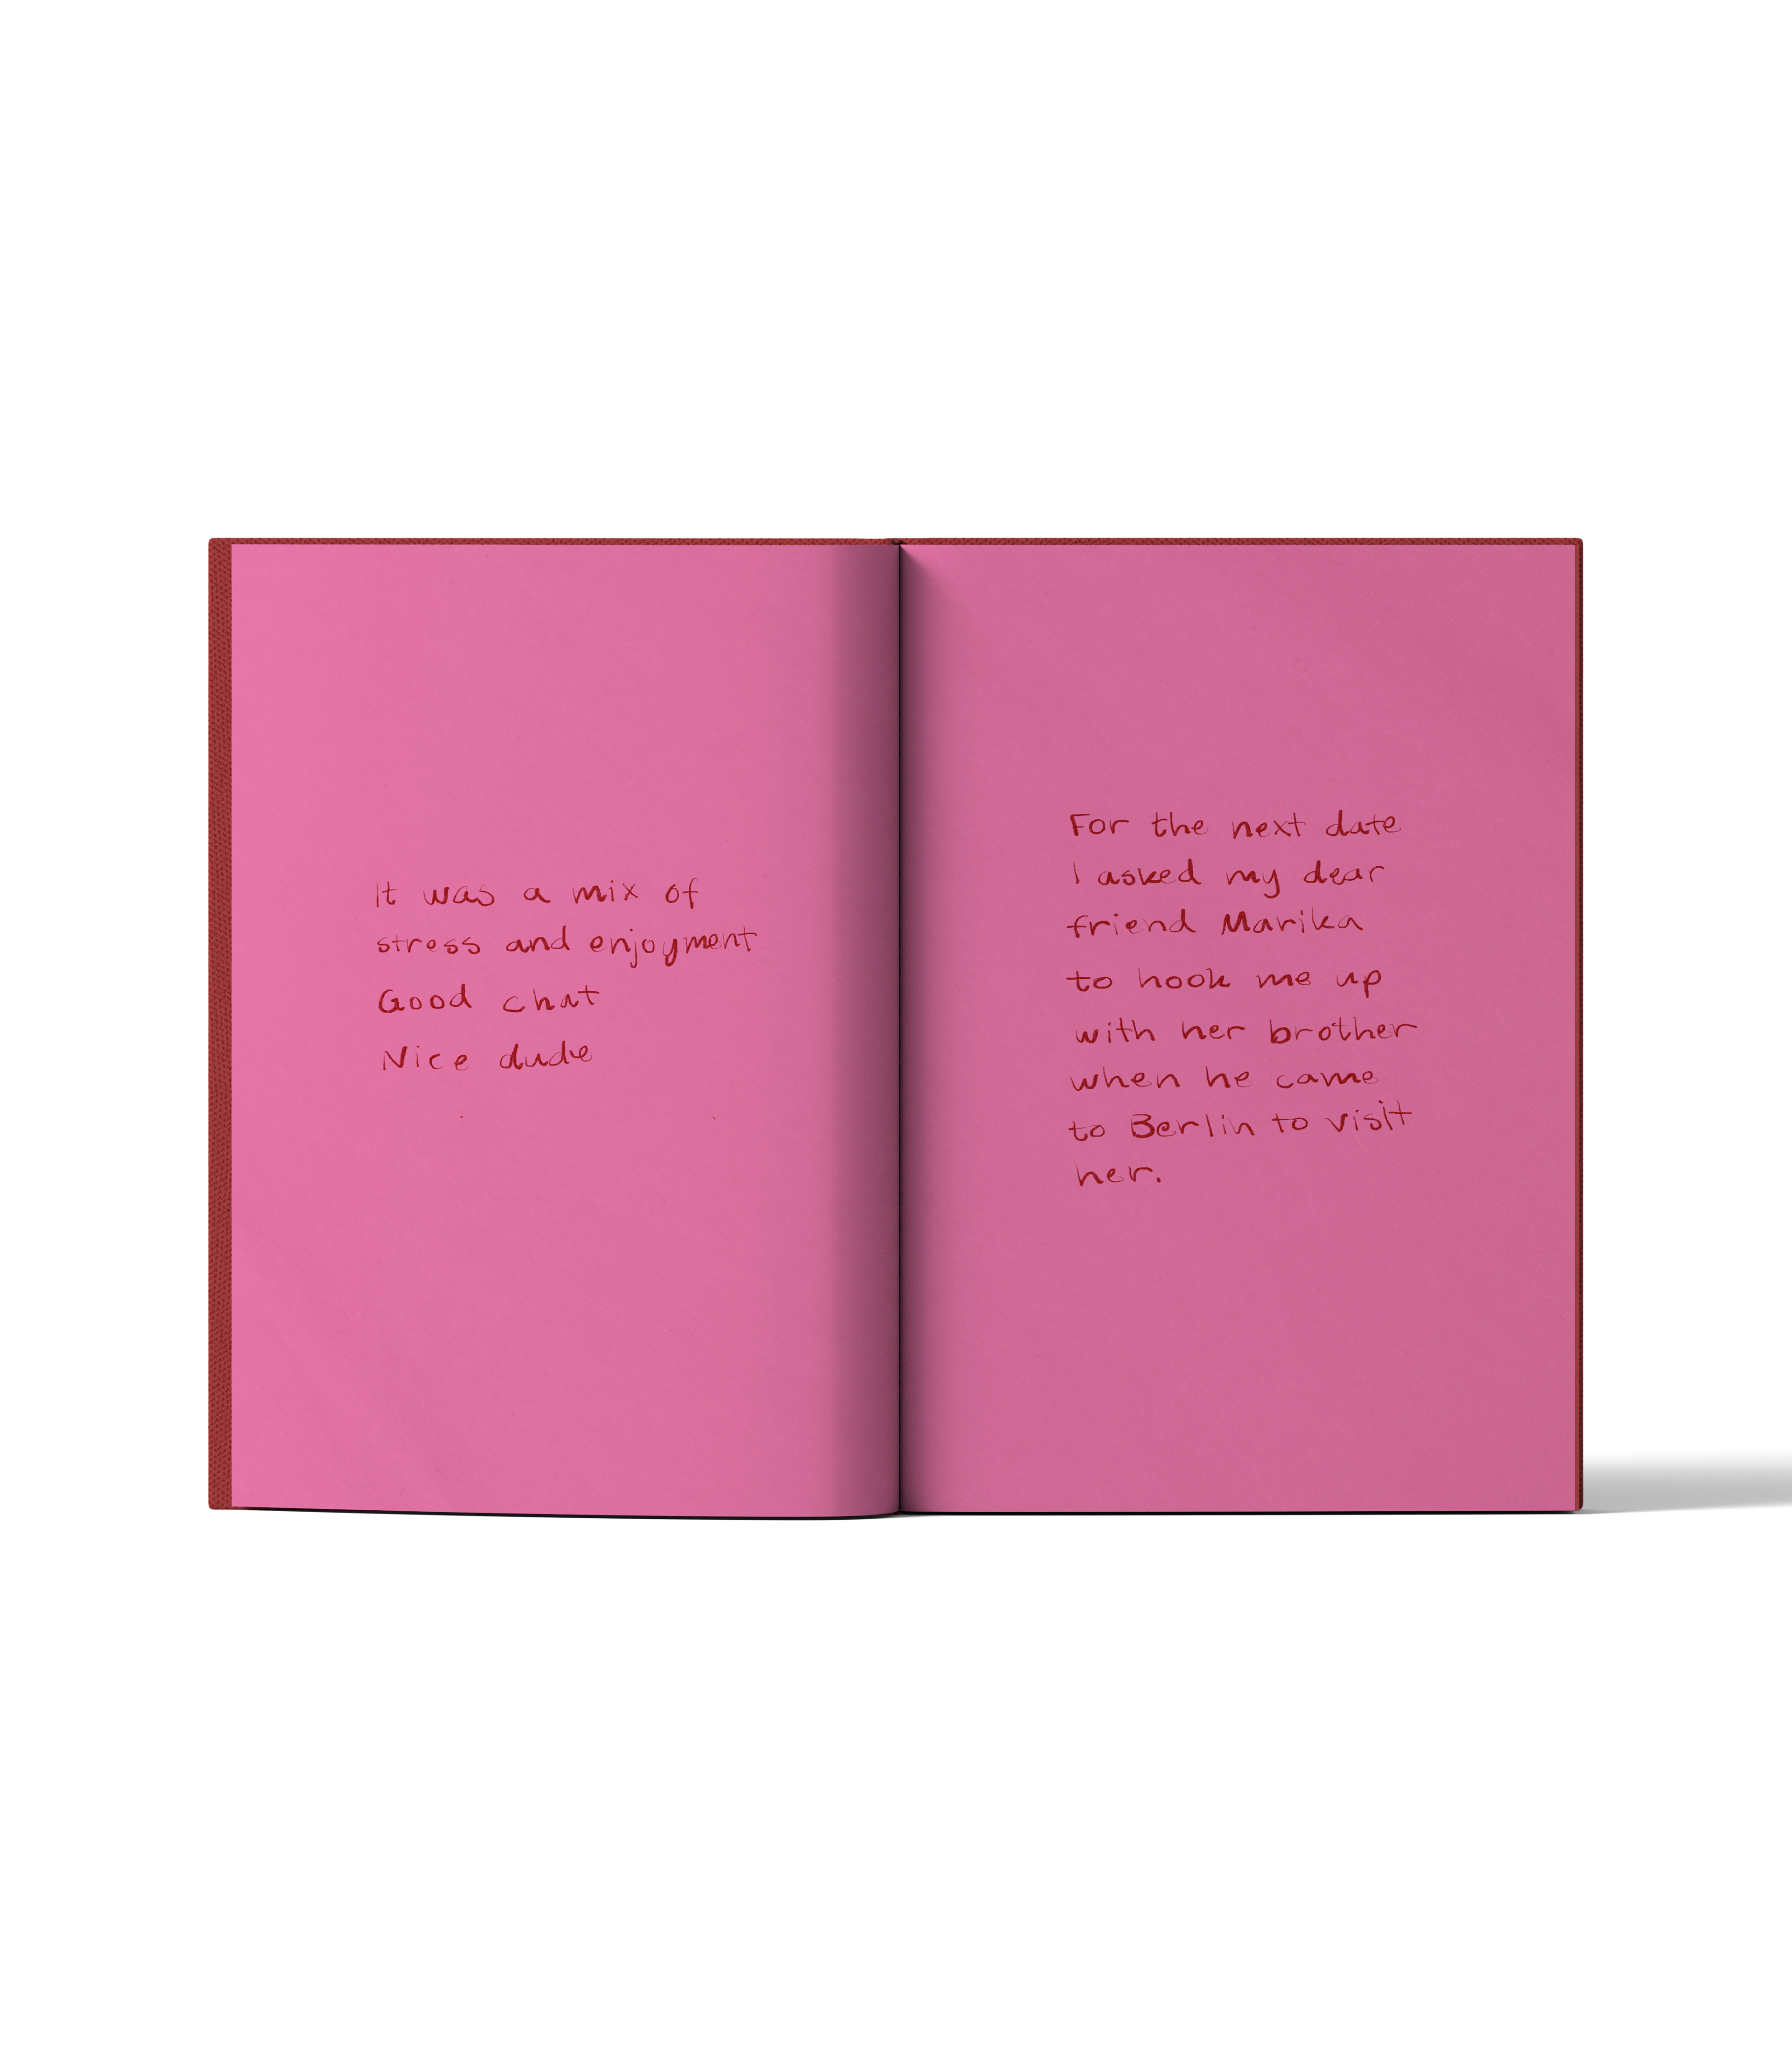 It was a mix of
stress and enjoyment
Good chat
Nice dude
For the next date
I asked my dear
friend Marika
to hook me up
with her brother
when he came
to Berlin to visit
her.